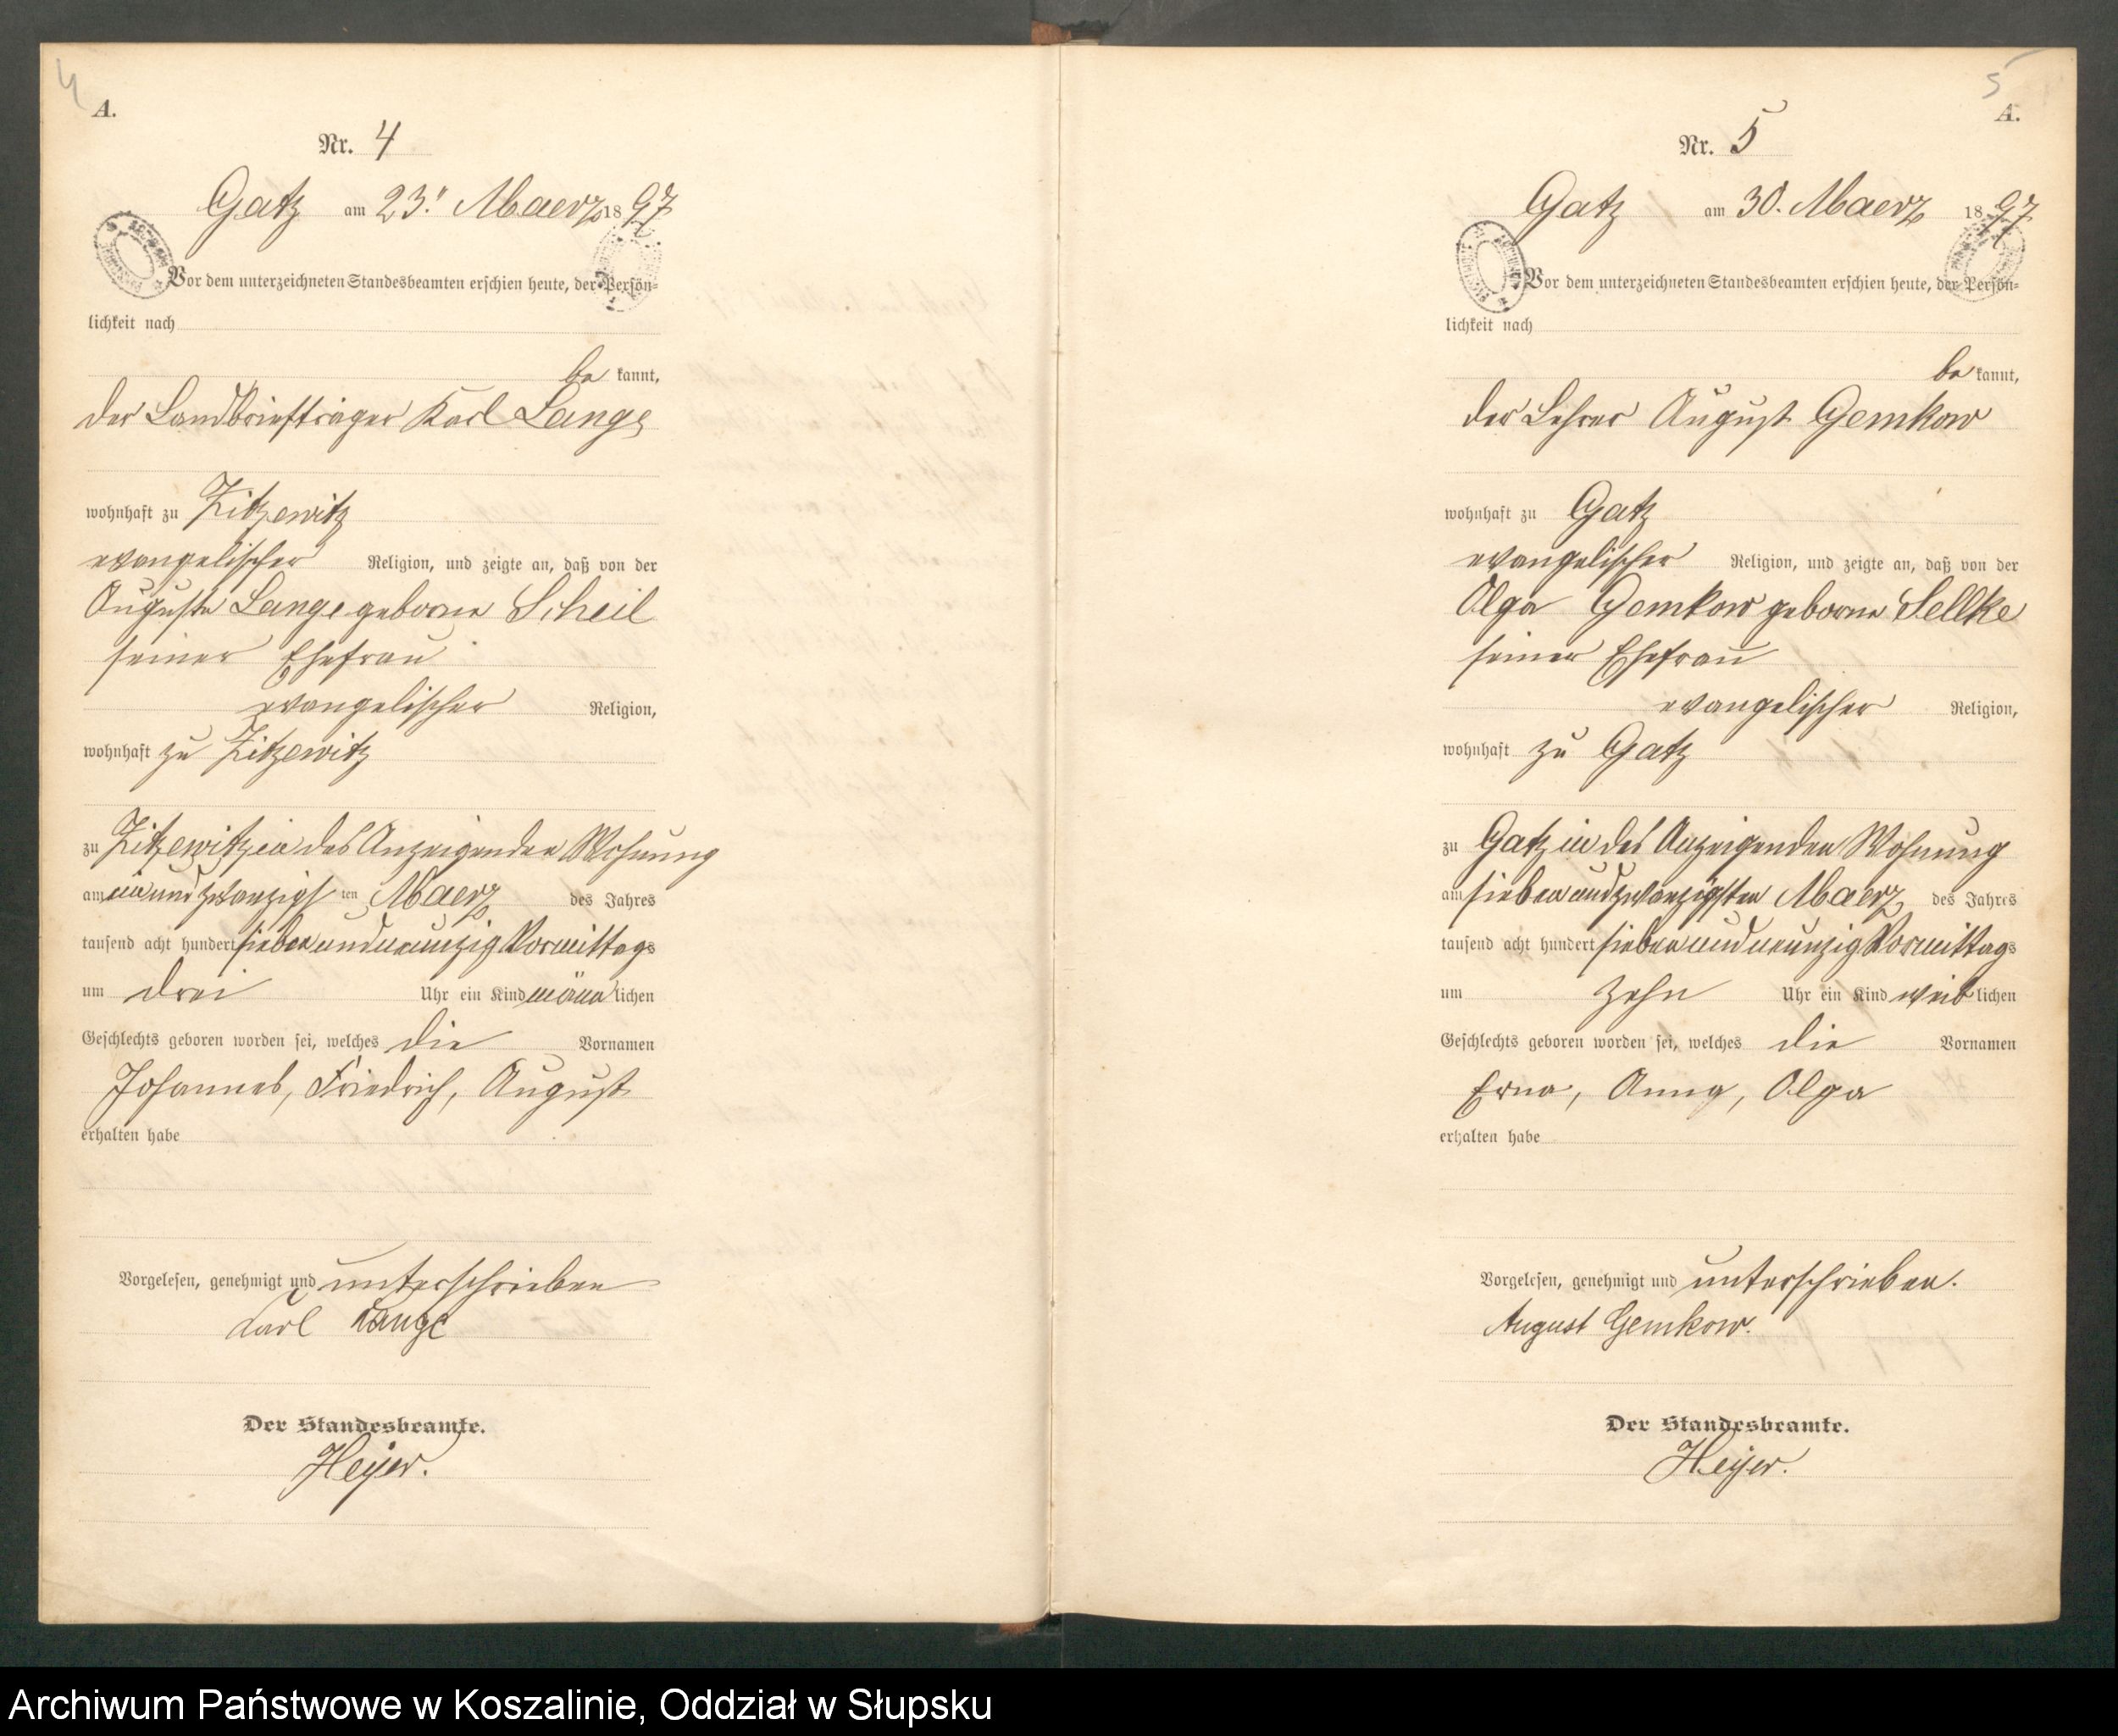 4
A.
Nr. 4
Gatz am 23ten Maerz 1897
Vor dem unterzeichneten Standesbeamten erschien heute, der Persön-
lichkeit nach
be kannt,
der Landbriefträger Karl Lange
wohnhaft zu Zitzewitz
evangelischer Religion, und zeigte an, daß von der
Auguste Lange geborne Scheil
seiner Ehefrau
evangelischer Religion,
wohnhaft zu Zitzewitz
zu Zitzewitz in des Anzeigenden Wohnung
am einundzwanzigsten Maerz des Jahres
tausend acht hundert siebenundneunzig Vormittags
um drei Uhr ein Kind männlichen
Geschlechts geboren worden sei, welches die Vornamen
Johannes, Friedrich, August
erhalten habe
Vorgelesen, genehmigt und unterschrieben
Karl Lange
Der Standesbeamte.
Heyer.
5
A.
Nr. 5
Gatz am 30. Maerz 1897
Vor dem unterzeichneten Standesbeamten erschien heute, der Persön-
lichkeit nach
be kannt,
der Lehrer August Gemkow
wohnhaft zu Gatz
evangelischer Religion, und zeigte an, daß von der
Olga Gemkow geborne Sellke
seiner Ehefrau
evangelischer Religion,
wohnhaft zu Gatz
zu Gatz in des Anzeigenden Wohnung
am siebenundzwanzigsten Maerz des Jahres
tausend acht hundert siebenundneunzig Vormittags
um zehn Uhr ein Kind weiblichen
Geschlechts geboren worden sei, welches die Vornamen
Erna, Anna, Olga
erhalten habe
Vorgelesen, genehmigt und unterschrieben.
August Gemkow.
Der Standesbeamte.
Heyer.
Archiwum Państwowe w Koszalinie, Oddział w Słupsku